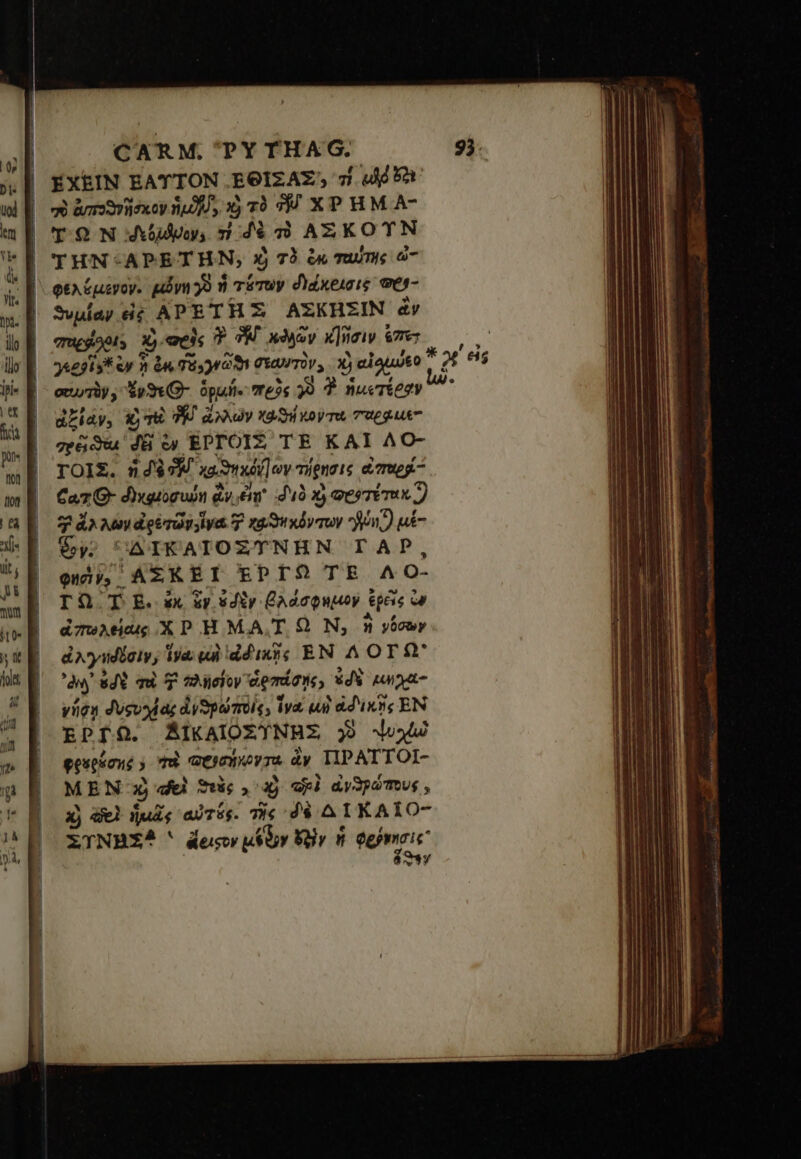 CARM. PYTHAG. 93.
ΕΧΕΙΝ ΕΑΥΤΟΝ ΕΘΙΣΑΣ, τί μὲν ἐστι
τὸ ἀποθνῆσκον ἡμῶν, καὶ τὸ τῶν ΧΡΗΜΑ-
ΤΩΝ δεόμενον, τί δὲ τὸ ΑΣΚΟΥΝ
ΤΗΝ ΑΡΕΤΗΝ, καὶ τὸ ἐκ ταύτης ὠ-
φελούμενον. μόνη γὰρ ἡ τούτων διάκρισις προ-
θυμίαν εἰς ΑΡΕΤΗΣ ΑΣΚΗΣΙΝ ἂν
παράσχοι, καὶ πρὸς τὴν τῶν καλῶν κτῆσιν ἐπε-
* ἐν ἡ ἐκ τοῦ γνῶθι σεαυτὸν, καὶ αἰσχύνεο * εἰς
σαυτὸν, ἔνθεος ὁρμή. πρὸς γὰρ τὴν ἡμετέραν
ἀξίαν, καὶ τὰ τῶν ἄλλων καθήκοντα παραμε-
τρεῖσθαι δεῖ ἐν ΕΡΓΟΙΣ ΤΕ ΚΑΙ ΛΟ-
ΓΟΙΣ. ἡ δὲ τῶν καθηκόντων τήρησις ἀπαρά-
βατος δικαιοσύνη ἂν εἴη· διὸ καὶ προτέτακται
τῶν ἄλλων ἀρετῶν, ἵνα τῶν καθηκόντων γένηται μέ-
τρον. ΔΙΚΑΙΟΣΥΝΗΝ ΓΑΡ,
φησὶν, ΑΣΚΕΙ ΕΡΓΩ ΤΕ ΛΟ-
ΓΩ ΤΕ. ἐκ οὖν οὐδὲν βλάσφημον ἐρεῖς ἐν
ἀπωλείαις ΧΡΗΜΑΤΩΝ, ἢ νόσων
ἀλγηδόσιν, ἵνα μὴ ἀδικῇς ΕΝ ΛΟΓΩ·
ἀλλ' οὐδὲ τὰ τῶν πλησίον ἁρπάσῃς, οὐδὲ μηχα-
νήσῃ δυστυχίας ἀνθρώποις, ἵνα μὴ ἀδικῇς ΕΝ
ΕΡΓΩ. ΔΙΚΑΙΟΣΥΝΗΣ γὰρ ψυχὴν
φρουρούσης, τὰ προσήκοντα ἂν ΠΡΑΤΤΟΙ-
ΜΕΝ καὶ περὶ θεοὺς, καὶ περὶ ἀνθρώπους,
καὶ περὶ ἡμᾶς αὐτούς. τῆς δὲ ΔΙΚΑΙΟ-
ΣΥΝΗΣ ἄριστον μέτρον ἐστὶν ἡ φρόνησις·
ὅθεν